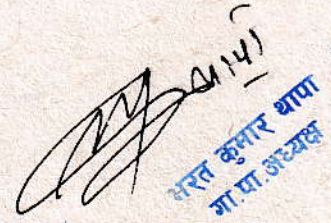 थापा
भरत कुमार थापा
गा.पा.अध्यक्ष